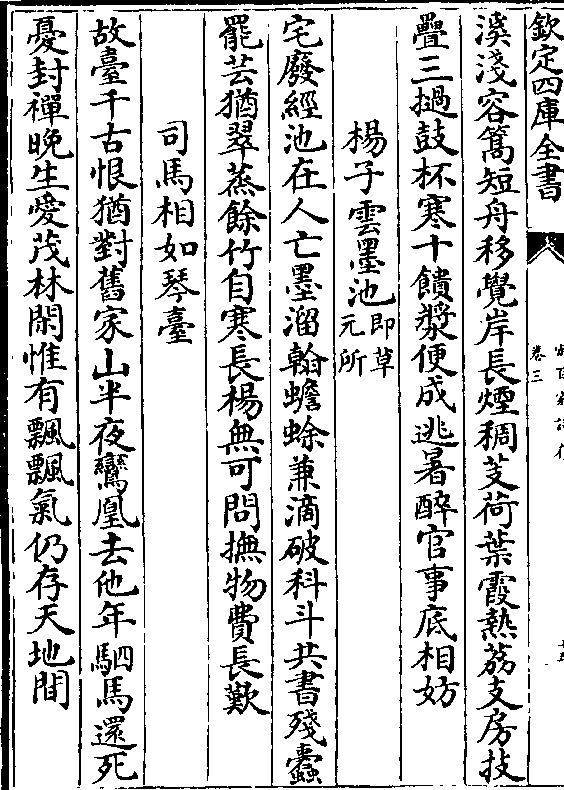 欽定四庫全書
卷三
溪淺容篙短舟移覺岸長煙稠芰荷葉霞熱荔支房技
疊三撾鼓杯寒十饋漿便成逃暑醉官事底相妨
楊子雲墨池即草元所
宅廢經池在人亡墨溜翰蟾蜍兼滴破科斗共書殘蠹
罷芸猶翠蒸餘竹自寒長楊無可問撫物費長歎
司馬相如琴臺
故臺千古恨猶對舊家山半夜鸞凰去他年駟馬還死
憂封禪晚生愛茂林閑惟有飄飄氣仍存天地間